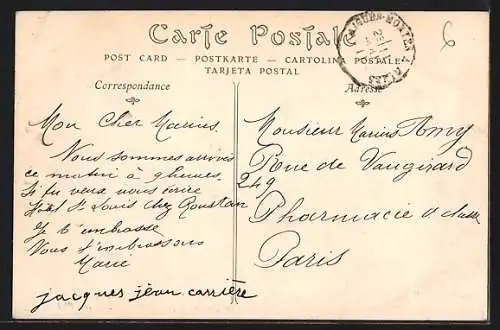 Carte Postale
POST CARD — POSTKARTE — CARTOLINA POSTALE
TARJETA POSTAL
Correspondance
Mon Cher Marius
Nous sommes arrivés
ce matin à 9 heures.
Si tu veux nous écrire
Hôtel St Louis chez Roustan
Je t'embrasse
Vous t'embrassons
Marie
jacques jean carrière
Adresse
AIGUES-MORTES
Monsieur Marius Amy
Rue de Vaugirard
249
Pharmacie
Paris
6